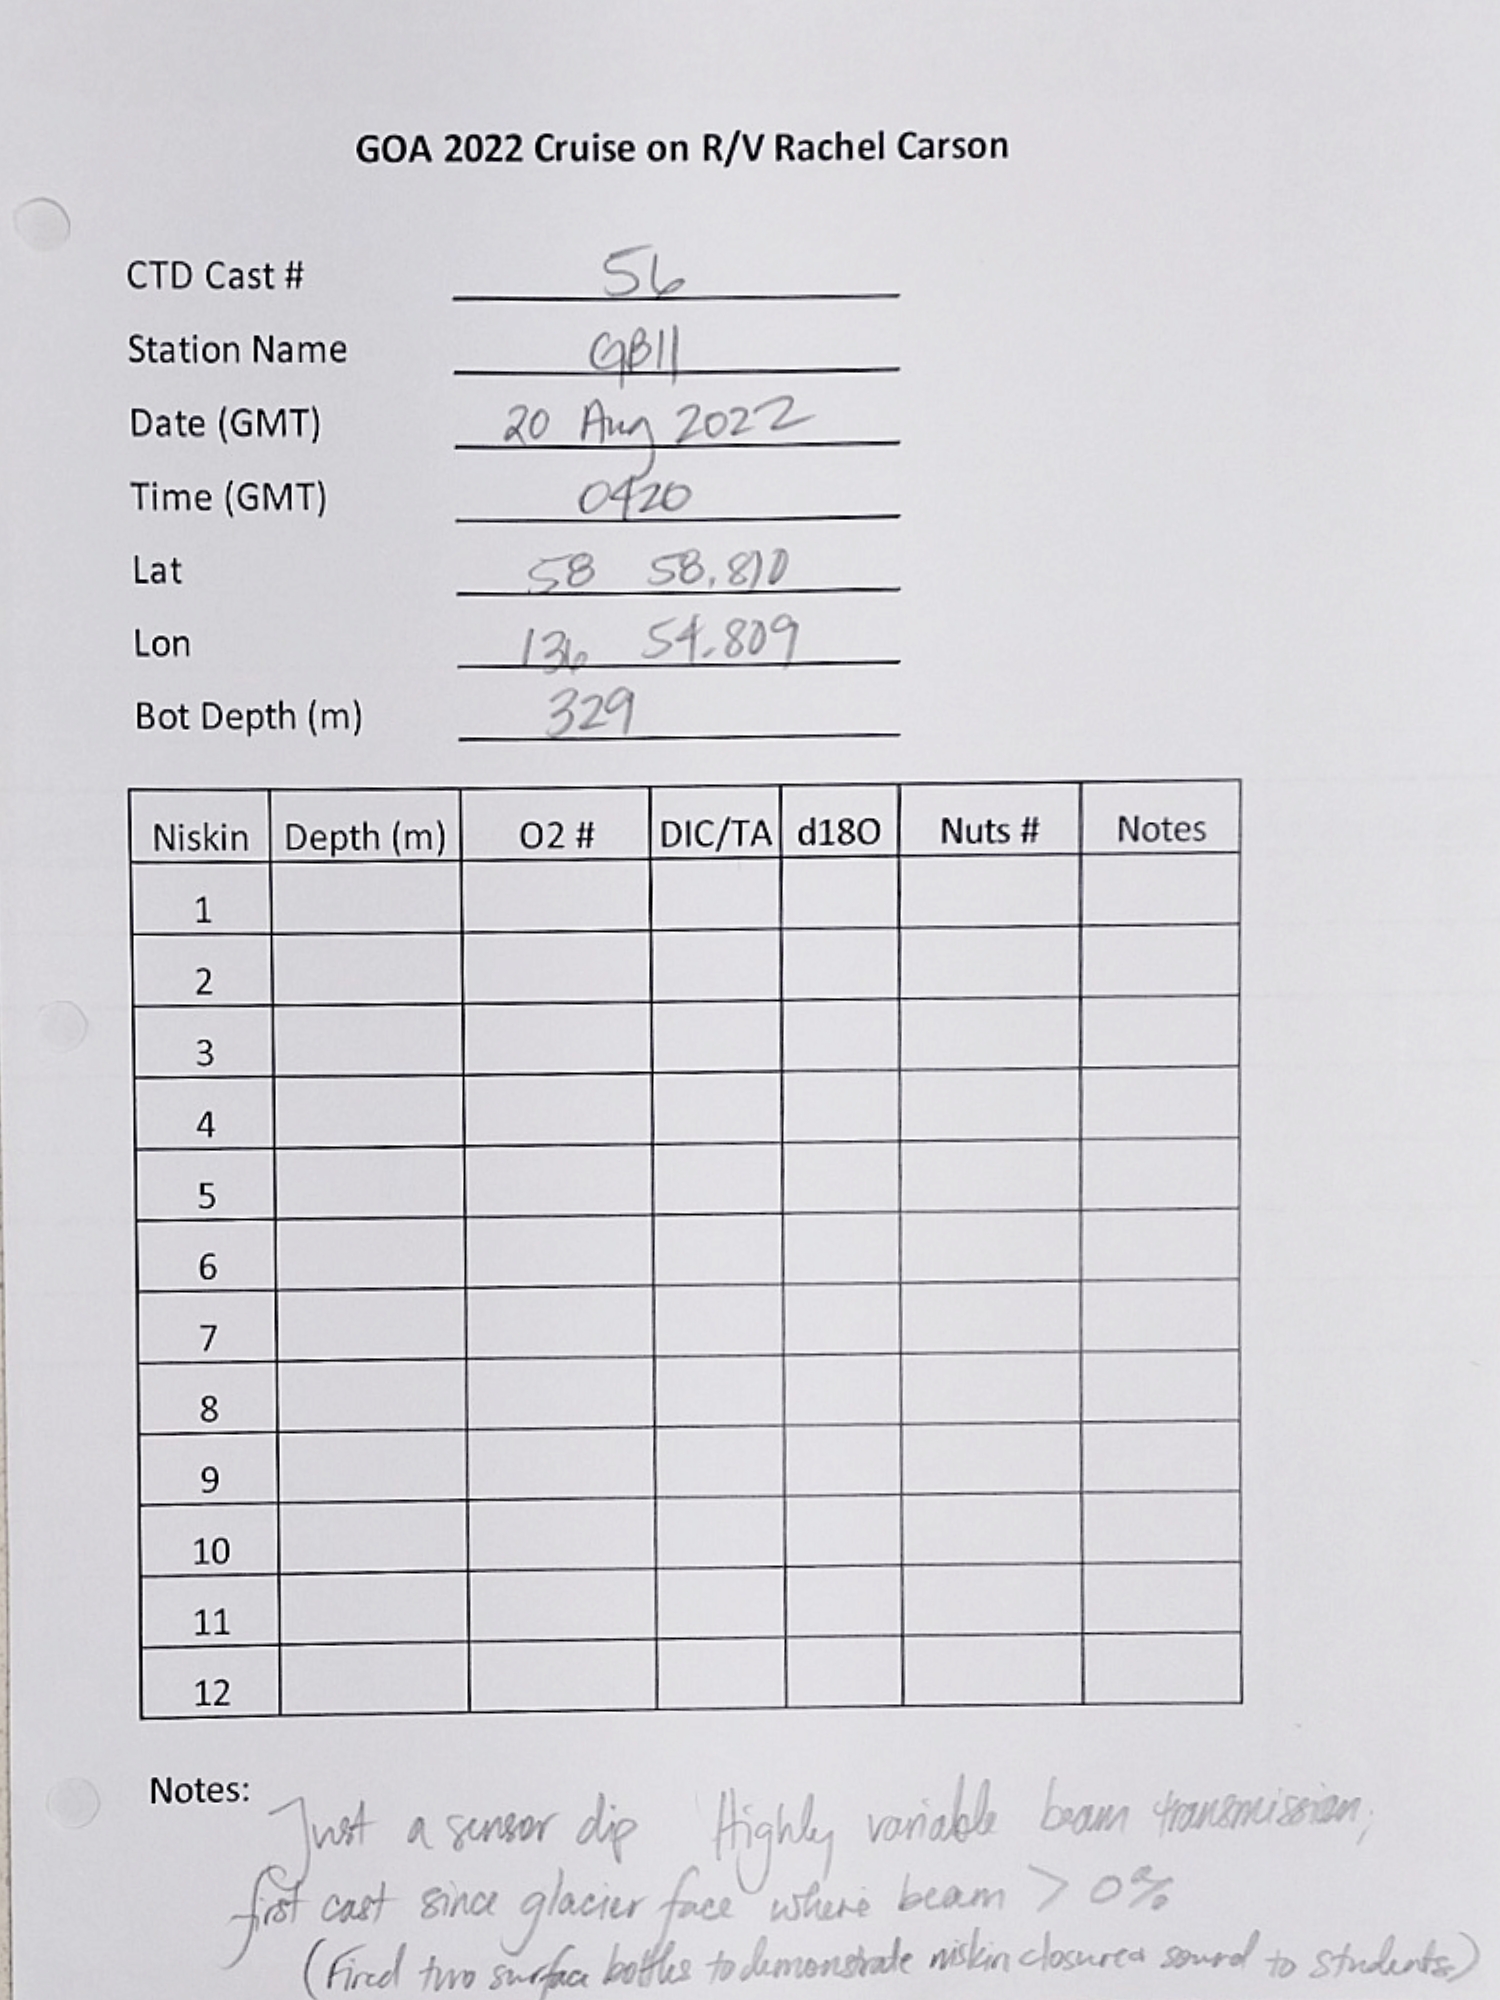 GOA 2022 Cruise on R/V Rachel Carson
CTD Cast # 56
Station Name GB11
Date (GMT) 20 Aug 2022
Time (GMT) 0420
Lat 58 58.810
Lon 136 54.809
Bot Depth (m) 329
Niskin Depth (m) O2 # DIC/TA d18O Nuts # Notes
1
2
3
4
5
6
7
8
9
10
11
12
Notes: Just a sensor dip Highly variable beam transmission;
first cast since glacier face where beam > 0%
(Fired two surface bottles to demonstrate niskin closure sound to students)